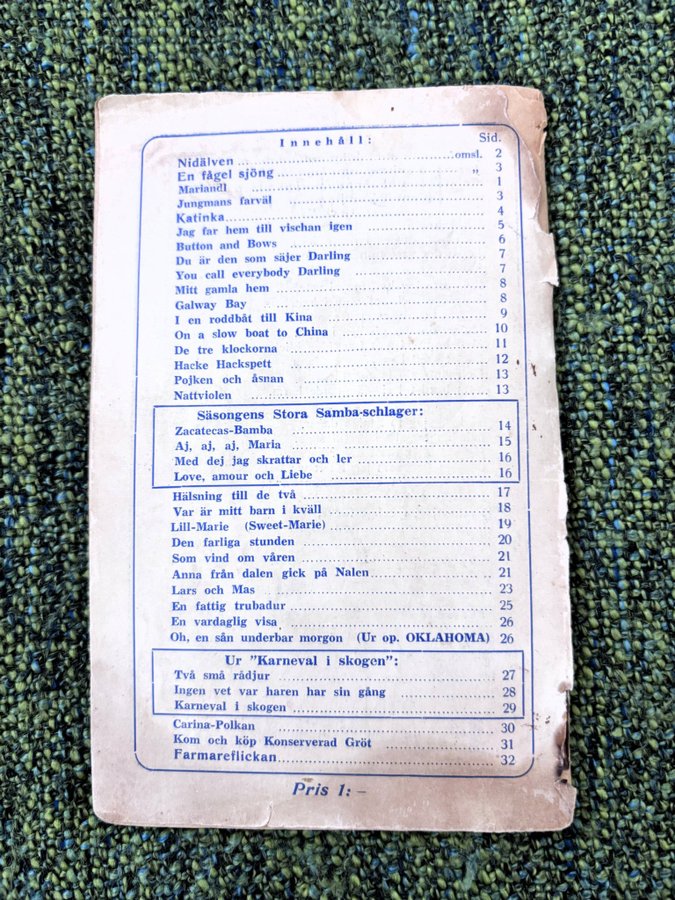 Innehåll: Sid.
Nidälven omsl. 2
En fågel sjöng „ 3
Mariandl 1
Jungmans farväl 3
Katinka 4
Jag far hem till vischan igen 5
Button and Bows 6
Du är den som säjer Darling 7
You call everybody Darling 7
Mitt gamla hem 8
Galway Bay 8
I en roddbåt till Kina 9
On a slow boat to China 10
De tre klockorna 11
Hacke Hackspett 12
Pojken och åsnan 13
Nattviolen 13
Säsongens Stora Samba-schlager:
Zacatecas-Bamba 14
Aj, aj, aj, Maria 15
Med dej jag skrattar och ler 16
Love, amour och Liebe 16
Hälsning till de två 17
Var är mitt barn i kväll 18
Lill-Marie (Sweet-Marie) 19
Den farliga stunden 20
Som vind om våren 21
Anna från dalen gick på Nalen 21
Lars och Mas 23
En fattig trubadur 25
En vardaglig visa 26
Oh, en sån underbar morgon (Ur op. OKLAHOMA) 26
Ur "Karneval i skogen":
Två små rådjur 27
Ingen vet var haren har sin gång 28
Karneval i skogen 29
Carina-Polkan 30
Kom och köp Konserverad Gröt 31
Farmareflickan 32
Pris 1: –